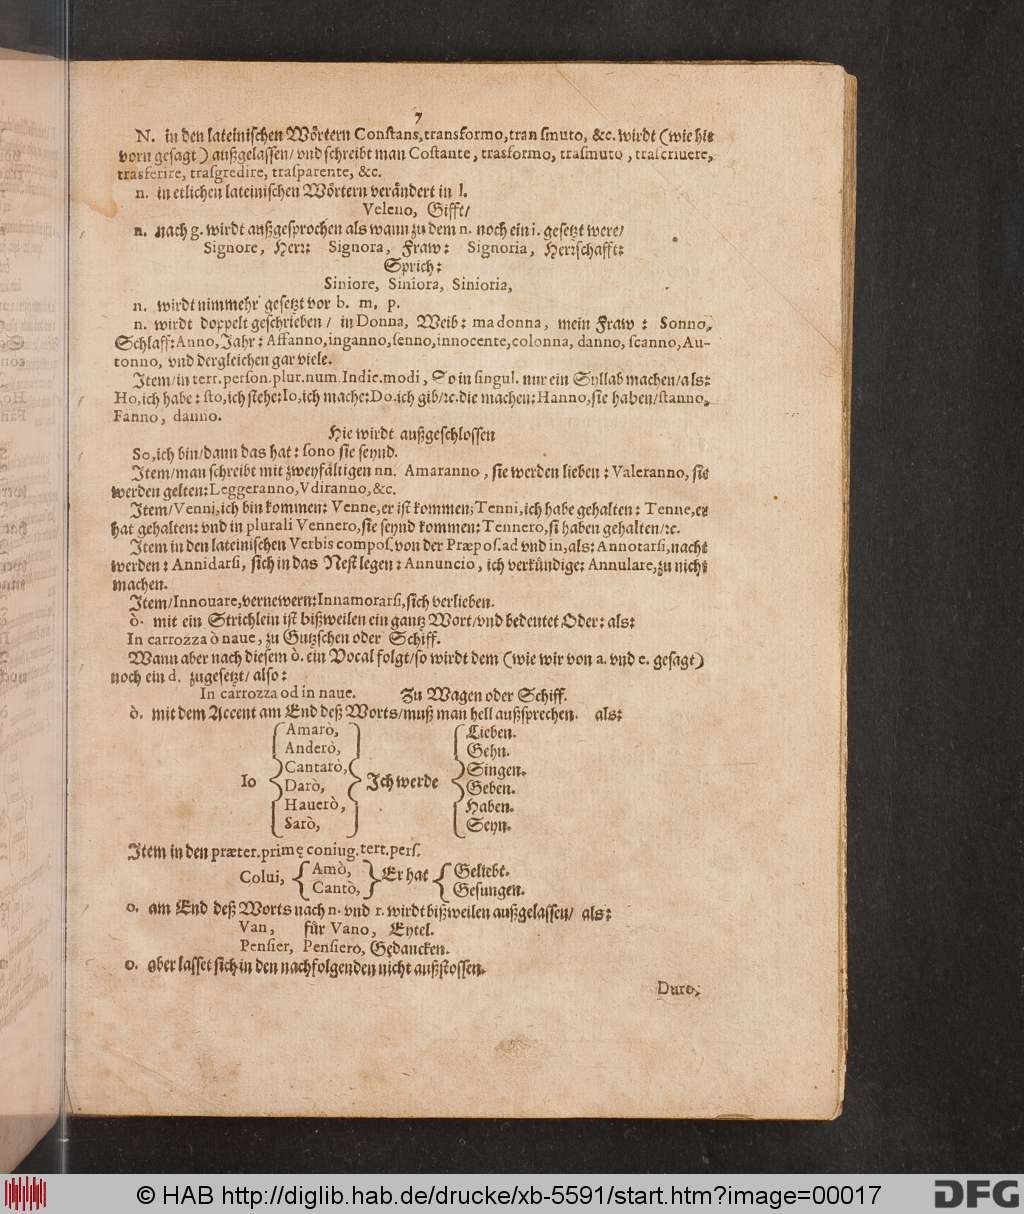 7
N. in den lateinischen Wörtern Constans, transformo, transmuto, &c. wirdt (wie hie
vorn gesagt) außgelassen/ vnd schreibt man Costante, trasformo, trasmuto, trascriuere,
trasferire, trasgredire, trasparente, &c.
n. in etlichen lateinischen Wörtern verändert in l.
Veleno, Gifft/
n. nach g. wirdt außgesprochen als wann zu dem n. noch ein i. gesetzt were/
Signore, Herr: Signora, Fraw: Signoria, Herrschafft:
Sprich:
Siniore, Siniora, Sinioria,
n. wirdt nimmehr gesetzt vor b. m, p.
n. wirdt doppelt geschrieben/ in Donna, Weib: madonna, mein Fraw: Sonno,
Schlaff: Anno, Jahr: Affanno, inganno, senno, innocente, colonna, danno, scanno, Au-
tonno, vnd dergleichen gar viele.
Item/ in tert. person. plur. num. Indic. modi, So in singul. nur ein Syllab machen/ als:
Ho, ich habe: sto, ich stehe: Io, ich mache: Do. ich gib/ꝛc. die machen: Hanno, sie haben/ stanno,
Fanno, danno.
Hie wirdt außgeschlossen
So, ich bin/ dann das hat: sono sie seynd.
Item/ man schreibt mit zweyfältigen nn. Amaranno, sie werden lieben: Valeranno, sie
werden gelten: Leggeranno, Vdiranno, &c.
Item/ Venni, ich bin kommen: Venne, er ist kommen; Tenni, ich habe gehalten: Tenne, er
hat gehalten: vnd in plurali Vennero, sie seynd kommen: Tennero, si haben gehalten/ꝛc.
Item in den lateinischen Verbis compos. von der Præpos. ad vnd in, als: Annotarsi, nacht
werden: Annidarsi, sich in das Nest legen: Annuncio, ich verkündige: Annulare, zu nicht
machen.
Item/ Innouare, vernewern: Innamorarsi, sich verlieben.
ò. mit ein Strichlein ist bißweilen ein gantz Wort/ vnd bedeutet Oder: als:
In carrozza ò naue, zu Gutzschen oder Schiff.
Wann aber nach diesem ò. ein Vocal folgt/ so wirdt dem (wie wir von a. vnd e. gesagt)
noch ein d. zugesetzt/ also:
In carrozza od in naue. Zu Wagen oder Schiff.
ò. mit dem Accent am End deß Worts/ muß man hell außsprechen. als:
Io { Amarò, Anderò, Cantarò, Darò, Hauerò, Sarò, } Ich werde { Lieben. Gehn. Singen. Geben. Haben. Seyn.
Item in den præter. primę coniug. tert. pers.
Colui, { Amò, Cantò, } Er hat { Geliebt. Gesungen.
o. am End deß Worts nach n. vnd r. wirdt bißweilen außgelassen/ als:
Van, für Vano, Eytel.
Pensier, Pensiero, Gedancken.
o. aber lasset sich in den nachfolgenden nicht außstossen.
Duro,
© HAB http://diglib.hab.de/drucke/xb-5591/start.htm?image=00017
DFG